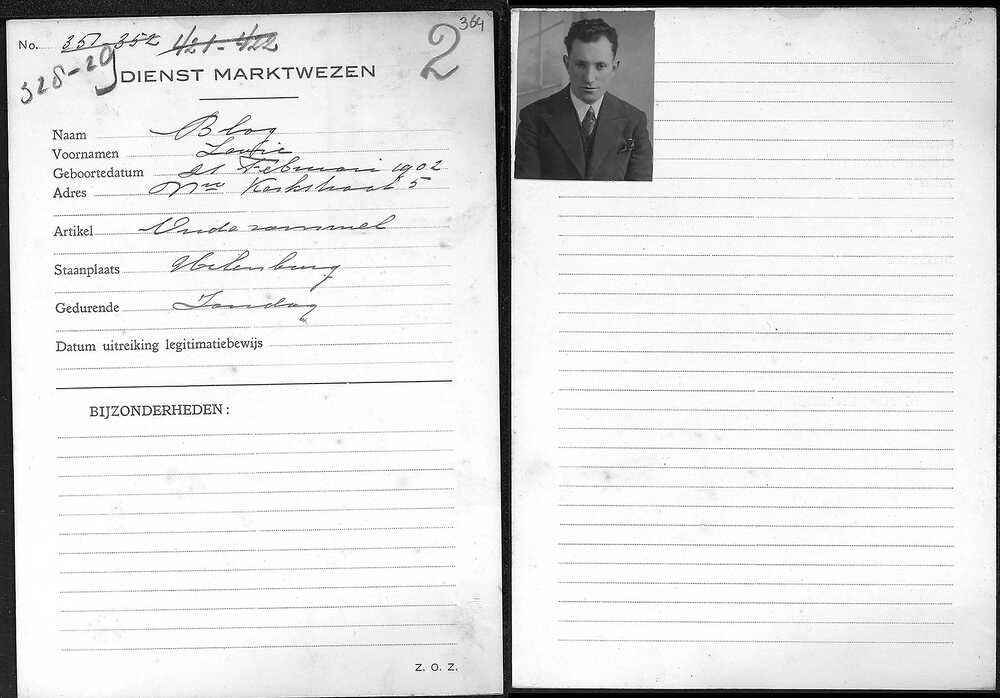 364
No. 351-352 421-422
2
328-29
DIENST MARKTWEZEN
Naam Blog
Voornamen Louie
Geboortedatum 21 Februari 1902
Adres Nwe Kerkstraat 5
Artikel Oude rommel
Staanplaats Uilenburg
Gedurende Zondag
Datum uitreiking legitimatiebewijs
BIJZONDERHEDEN:
Z. O. Z.